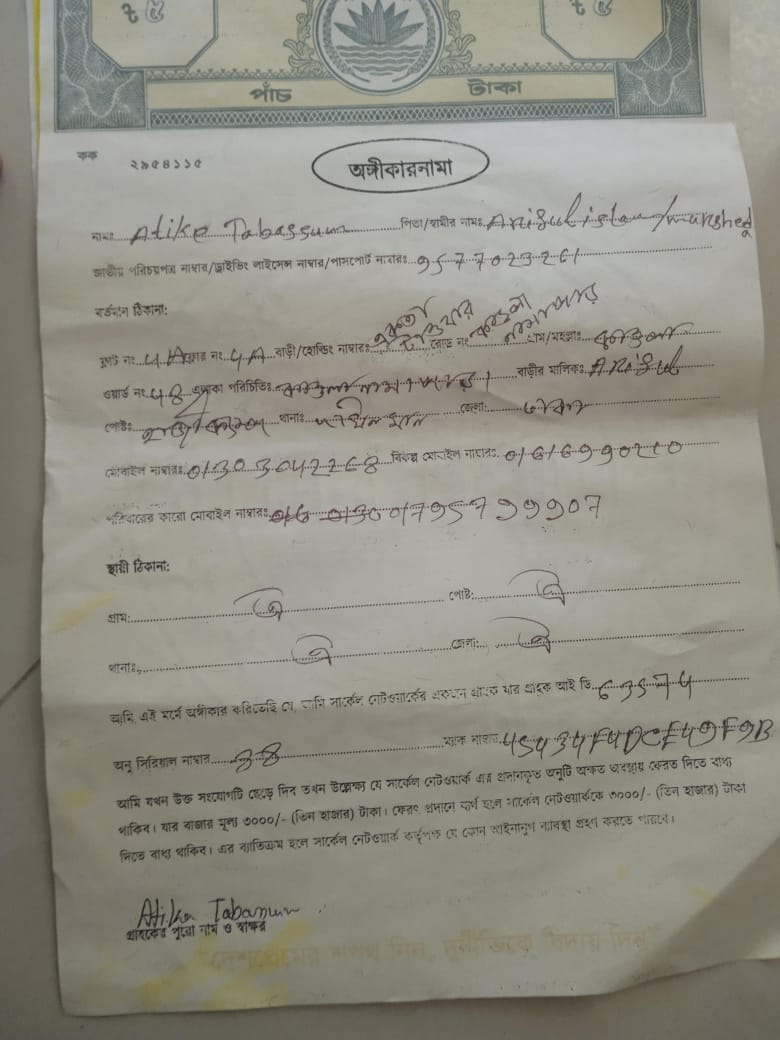 ৳ ৫ ৳ ৫
পাঁচ টাকা
কক ২৯৫৪১১৫
অঙ্গীকারনামা
নামঃ Atika Tabassum পিতা/স্বামীর নামঃ Ariful islam/murshed
জাতীয় পরিচয়পত্র নাম্বার/ড্রাইভিং লাইসেন্স নাম্বার/পাসপোর্ট নাম্বারঃ 9577023261
বর্তমান ঠিকানা:
ফ্লাট নং 4A ফ্লোর নং 4A বাড়ী/হোল্ডিং নাম্বারঃ একতা টাওয়ার রোড নং গ্রাম/মহল্লাঃ কাওলা
ওয়ার্ড নং 48 এলাকা পরিচিতিঃ বাড়ীর মালিকঃ Ariful
পোষ্টঃ থানাঃ জেলা: ঢাকা
মোবাইল নাম্বারঃ 01303042268 বিকল্প মোবাইল নাম্বারঃ
পরিবারের কারো মোবাইল নাম্বারঃ 01795799907
স্থায়ী ঠিকানা:
গ্রাম: ঐ পোষ্ট: ঐ
থানাঃ ঐ জেলা: ঐ
আমি, এই মর্মে অঙ্গীকার করিতেছি যে, আমি সার্কেল নেটওয়ার্কের একজন গ্রাহক যার গ্রাহক আই ডি 63574
অনু সিরিয়াল নাম্বার ম্যাক নাম্বার
আমি যখন উক্ত সংযোগটি ছেড়ে দিব তখন উল্লেক্ষ্য যে সার্কেল নেটওয়ার্ক এর প্রদানকৃত অনুটি অক্ষত অবস্থায় ফেরত দিতে বাধ্য
থাকিব। যার বাজার মূল্য ৩০০০/- (তিন হাজার) টাকা। ফেরৎ প্রদানে ব্যর্থ হলে সার্কেল নেটওয়ার্ককে ৩০০০/- (তিন হাজার) টাকা
দিতে বাধ্য থাকিব। এর ব্যতিক্রম হলে সার্কেল নেটওয়ার্ক কর্তৃপক্ষ যে কোন আইনানুগ ব্যবস্থা গ্রহণ করতে পারবে।
Atika Tabassum
গ্রাহকের পুরো নাম ও স্বাক্ষর
"দেশপ্রেমের শপথ নিন, দুর্নীতিকে বিদায় দিন"